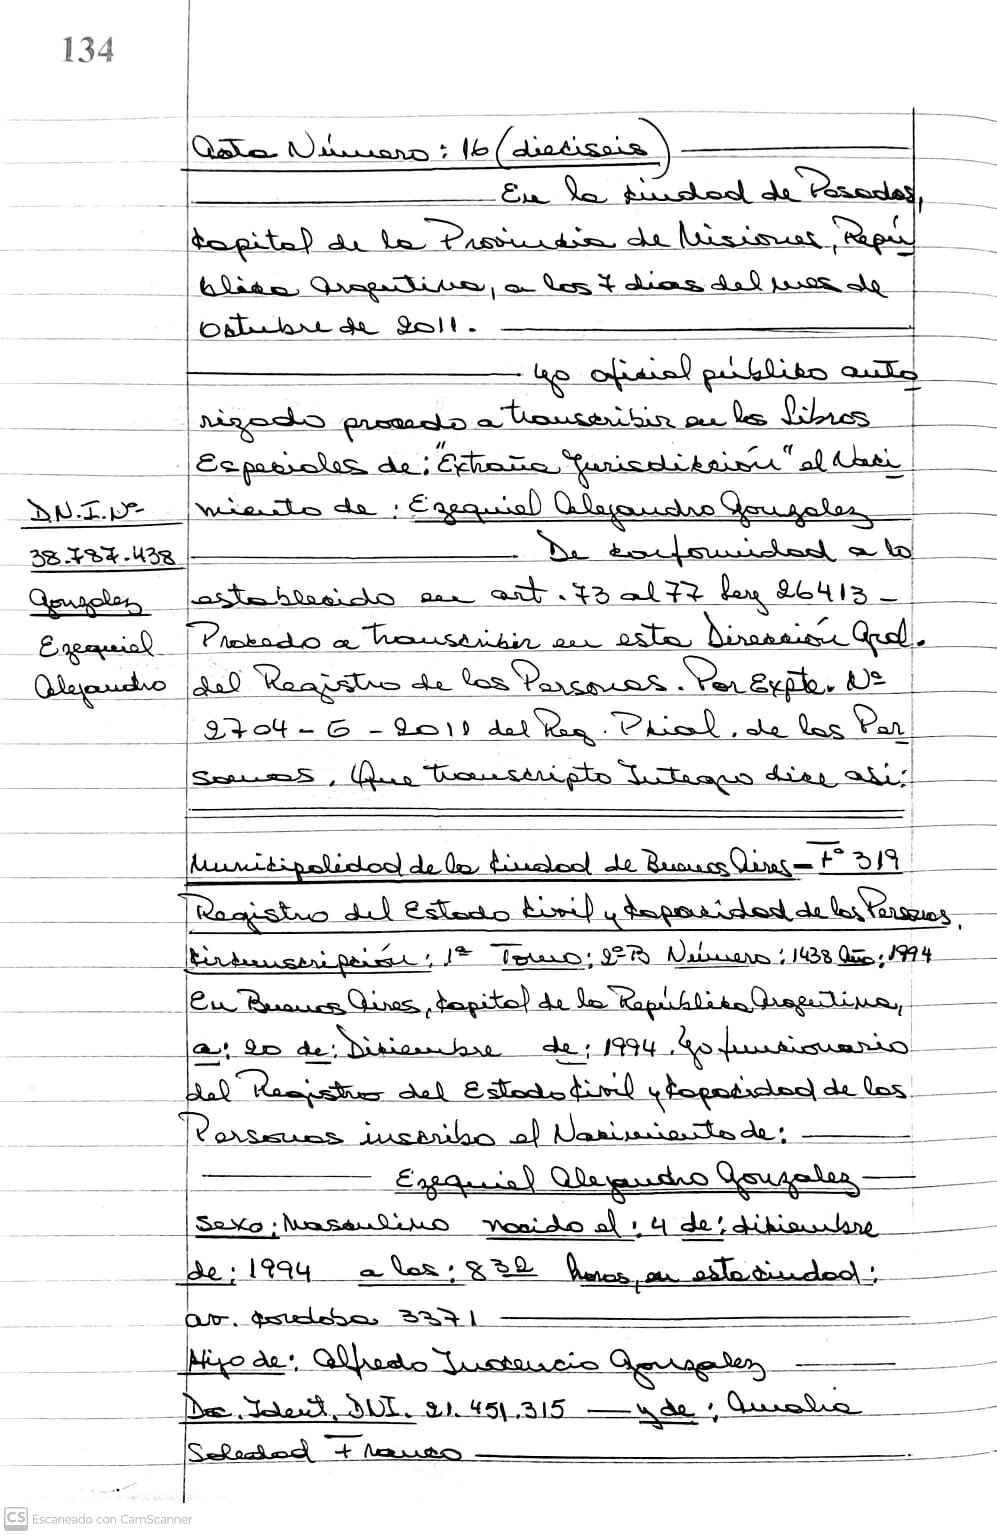 134
Acta Número: 16 (dieciseis)
En la Ciudad de Posadas,
Capital de la Provincia de Misiones, Repú
blica Argentina, a los 7 dias del mes de
Octubre de 2011.
Yo oficial público auto
rizado procedo a transcribir en los Libros
Especiales de: "Extraña Jurisdicción" el Naci
miento de: Ezequiel Alejandro Gonzalez
D.N.I. Nº
38.787.438
Gonzalez
Ezequiel
Alejandro
De conformidad a lo
establecido en art. 73 al 77 Ley 26413 -
Procedo a transcribir en esta Dirección Gral.
del Registro de las Personas. Por Expte. Nº
2704 - G - 2011 del Reg. Pcial. de las Per
sonas. Que transcripto Integro dice asi:
Municipalidad de la Ciudad de Buenos Aires - Fº 319
Registro del Estado Civil y Capacidad de las Personas,
Circunscripción: 1ª Tomo: 2º B Número: 1438 Año: 1994
En Buenos Aires, Capital de la República Argentina,
a: 20 de: Diciembre de: 1994. Yo funcionario
del Registro del Estado Civil y Capacidad de las
Personas inscribo el Nacimiento de:
Ezequiel Alejandro Gonzalez
Sexo: Masculino nacido el: 4 de: diciembre
de: 1994 a las: 8 32 horas, en esta ciudad:
av. Cordoba 3371
Hijo de: Alfredo Inocencio Gonzalez
Doc. Ident. DNI. 21.451.315 — y de: Amalia
Soledad Franco
CS Escaneado con CamScanner